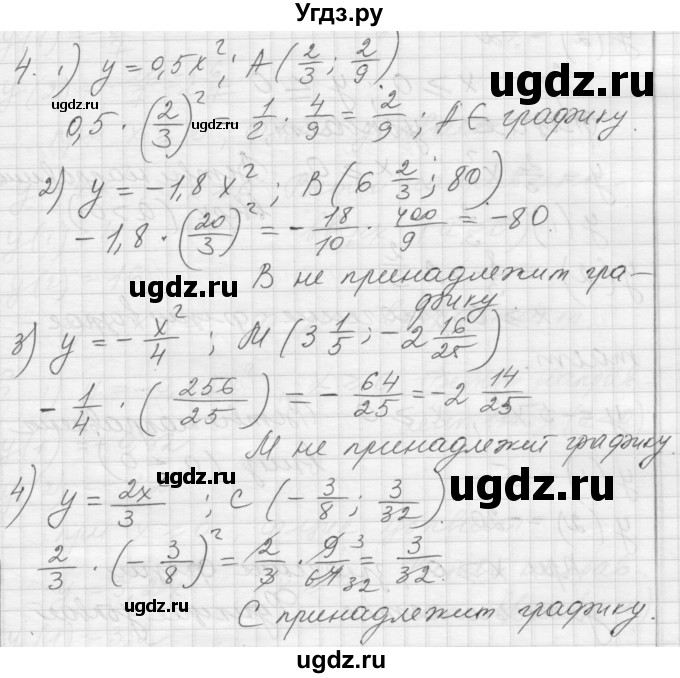 Угдз.ру
4. 1) y = 0,5x²; A(2/3; 2/9)
ugdz.ru
0,5 · (2/3)² = 1/2 · 4/9 = 2/9; A ∈ графику.
ugdz.ru
2) y = -1,8x²; B(6 2/3; 80)
-1,8 · (20/3)² = -18/10 · 400/9 = -80.
ugdz.ru
B не принадлежит гра-
фику.
ugdz.ru
3) y = -x²/4; M(3 1/5; -2 16/25)
-1/4 · (256/25) = -64/25 = -2 14/25
M не принадлежит графику.
4) y = 2x/3; C(-3/8; 3/32).
ugdz.ru
2/3 · (-3/8)² = 2/3 · 9/64 = 3/32.
3
32
ugdz.ru
C принадлежит графику.
ugdz.ru
ugdz.ru